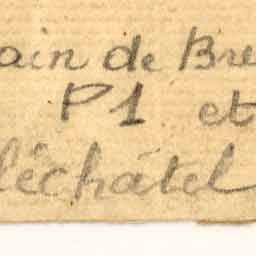 ain de Bre
P1 et
léchâtel